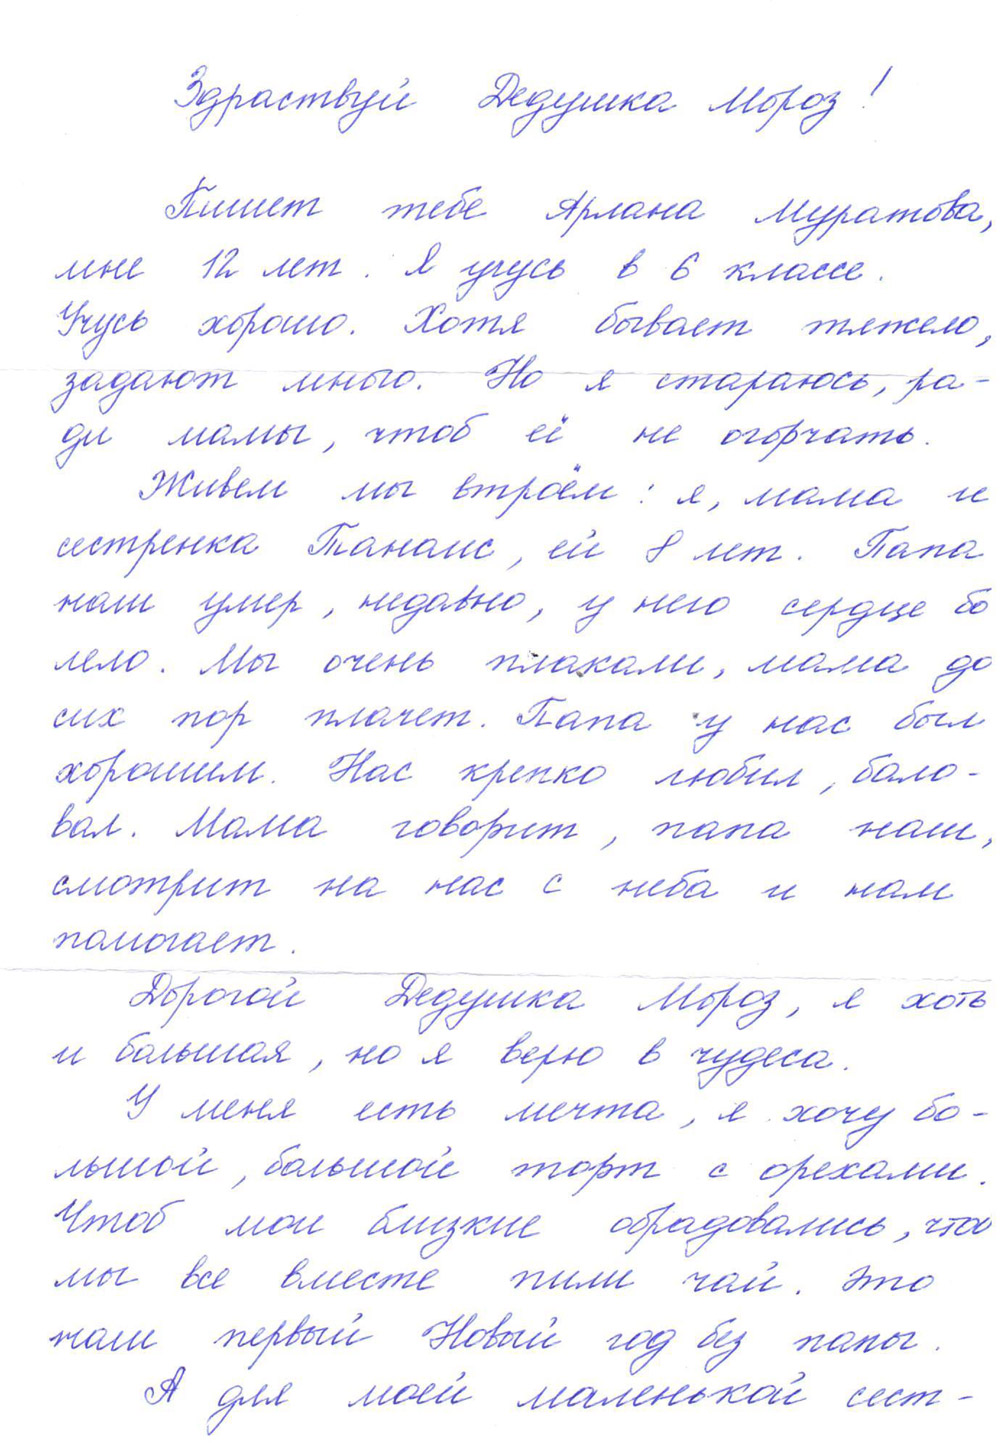 Здраствуй Дедушка Мороз!
Пишет тебе Арлана Муратова,
мне 12 лет. Я учусь в 6 классе.
Учусь хорошо. Хотя бывает тяжело,
задают много. Но я стараюсь, ра-
ди мамы, чтоб её не огорчать.
Живем мы втроём: я, мама и
сестренка Танаис, ей 8 лет. Папа
наш умер, недавно, у него сердце бо
лело. Мы очень плакали, мама до
сих пор плачет. Папа у нас был
хорошим. Нас крепко любил, бало-
вал. Мама говорит, папа наш,
смотрит на нас с неба и нам
помогает.
Дорогой Дедушка Мороз, я хоть
и большая, но я верю в чудеса.
У меня есть мечта, я хочу бо-
льшой, большой торт с орехами.
Чтоб мои близкие обрадовались, чтоб
мы все вместе пили чай. Это
наш первый Новый год без папы.
А для моей маленькой сест-